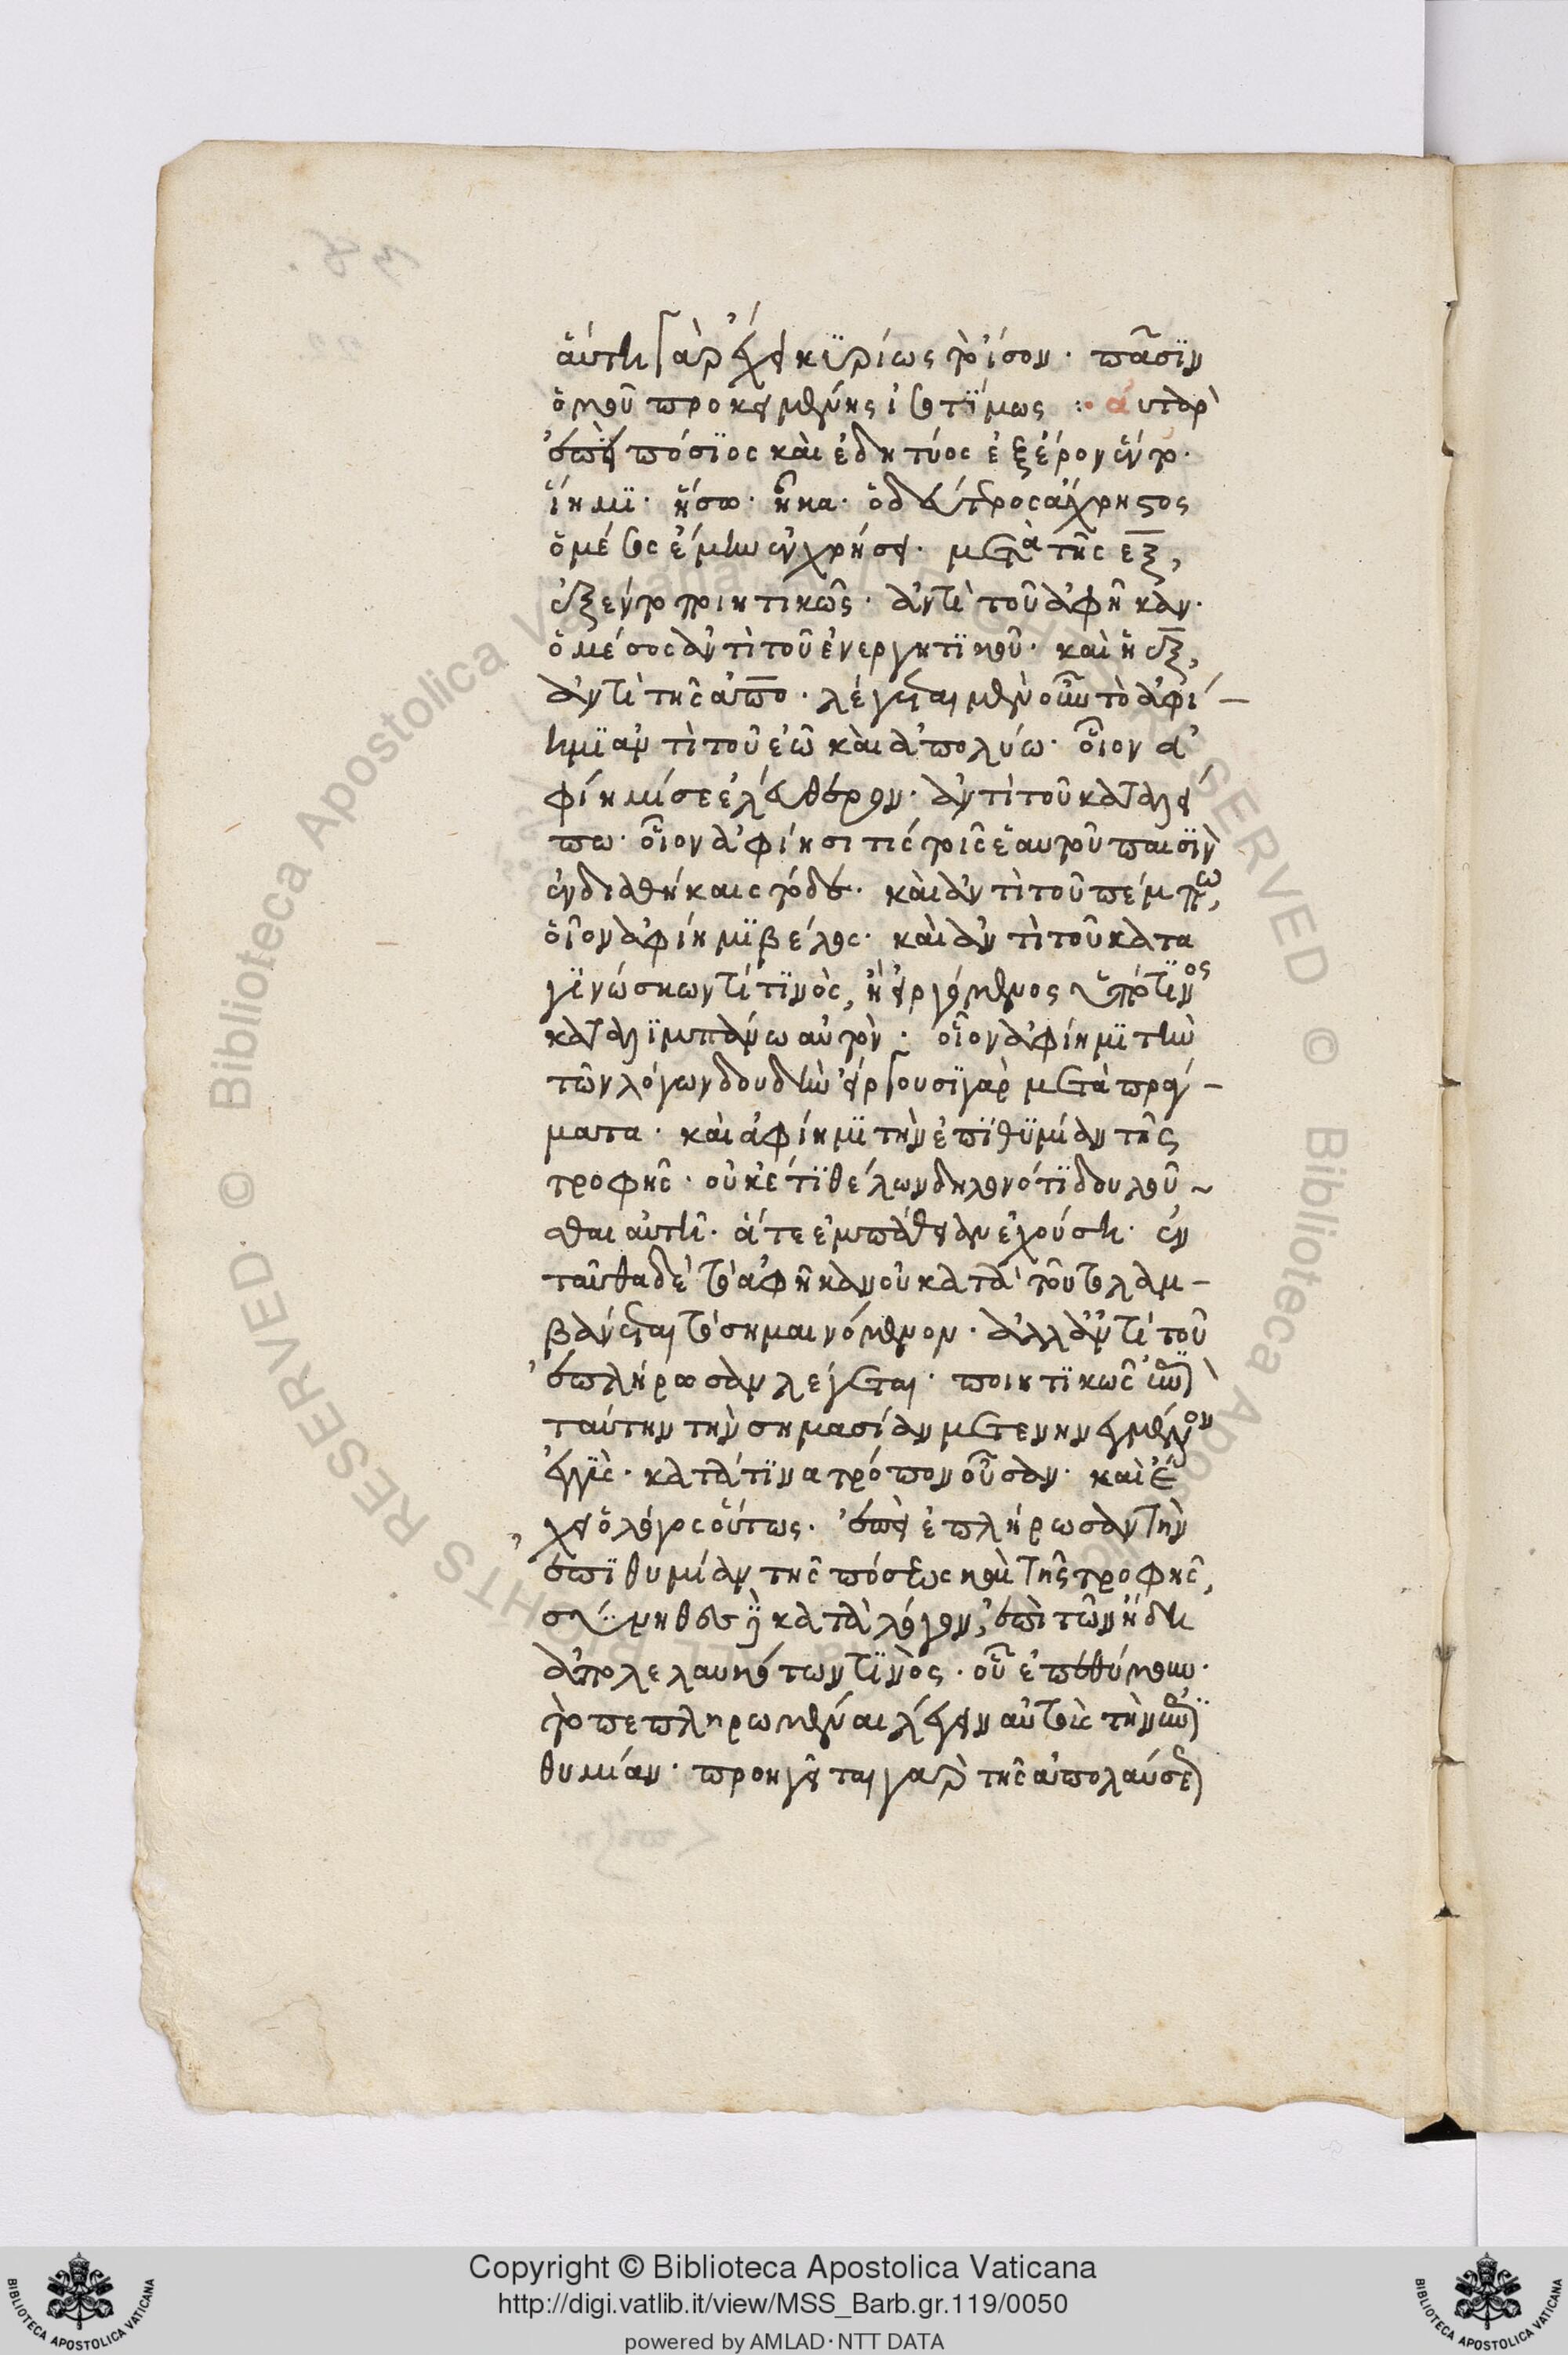 αὕτη γὰρ ἔχει κϋρίως τὸ ἴσον· πᾶσϊν
ὁμοῦ προκειμένης ἰσοτίμως :· αὐτὰρ
ἐπεὶ πόσϊος καὶ ἐδητύος ἐξ ἔρον ἕντο·
ἵημϊ· ἥσω· ἧκα· ὁ δεύτερος ἄχρηστος
ὁ μέσος ἕμην ἐν χρήσει· μετὰ τῆς εξ,
ἐξ ἕντο ποιητικῶς· ἀντὶ τοῦ ἀφῆκαν·
ὁ μέσος ἀντὶ τοῦ ἐνεργητϊκοῦ· καὶ ἡ εξ,
ἀντὶ τῆς ἀπο· λέγεται μὲν οὖν τὸ ἀφί-
ημϊ ἀντὶ τοῦ ἐῶ καὶ ἀπολύω· οἷον ἀ
φίημί σε ἐλεύθερον· ἀντὶ τοῦ καταλεί
πω· οἷον ἀφίησί τις τοῖς ἑαυτοῦ παισὶν
ἐν διαθήκαις τόδε· καὶ ἀντὶ τοῦ πέμπω,
οἷον ἀφίημϊ βέλος· καὶ ἀντὶ τοῦ κατα
γϊνώσκων τί τϊνὸς, ἢ εἰργόμενος ὑπό τϊνος
καταλϊμπάνω αὐτὸν· οἷον ἀφίημϊ τὴν
τῶν λόγων σπουδὴν εἴργουσϊ γάρ με τὰ πράγ-
ματα· καὶ ἀφίημϊ τὴν ἐπϊθϋμίαν τῆς
τροφῆς· οὐκέτϊ θέλων δηλονότϊ δουλοῦ-
σθαι αὐτῆ· ἅτε ἐμπάθειαν ἐχούση· ἐν
ταῦθα δὲ τὸ ἀφῆκαν οὐ κατὰ τοῦτο λαμ-
βάνεται τὸ σημαινόμενον· ἀλλ' ἀντὶ τοῦ
ἐπλήρωσαν λέγεται· ποιητϊκῶς ἐπὶ
ταύτην τὴν σημασίαν μετενηνεγμένον
ἐγγὺς· κατά τϊνα τρόπον οὖσαν· καὶ ἔ
χει ὁ λόγος οὕτως· ἐπεὶ ἐπλήρωσαν τὴν
ἐπϊθυμίαν τῆς πόσεως καὶ τῆς τροφῆς,
κατὰ λόγον, ἐπὶ τῶν ἤδη
ἀπολελαυκότων τϊνὸς· οὗ ἐπεθύμουν·
τὸ πεπληρωμέναι λέγειν αὐτοῖς τὴν ἐπϊ
θυμίαν· προηγεῖται γὰρ τῆς ἀπολαύσε
Copyright © Biblioteca Apostolica Vaticana
http://digi.vatlib.it/view/MSS_Barb.gr.119/0050
powered by AMLAD·NTT DATA